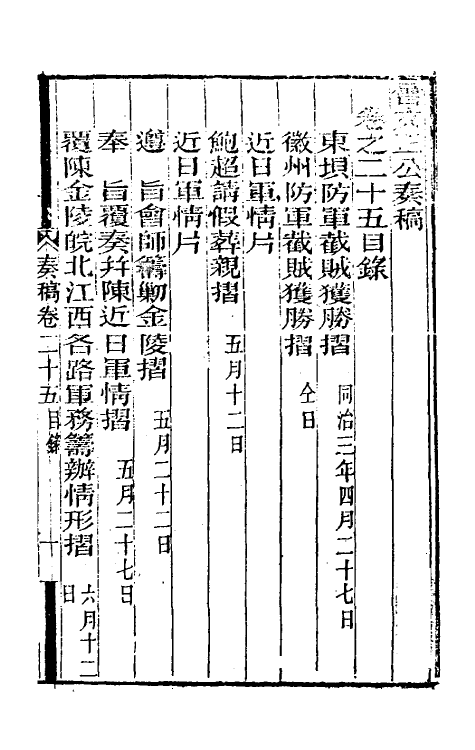 曾文正公奏稿
卷之二十五目錄
東壩防軍截賊獲勝摺 同治三年四月二十七日
徽州防軍截賊獲勝摺 仝日
近日軍情片
鮑超請假葬親摺 五月十二日
近日軍情片
遵 旨會師籌勦金陵摺 五月二十二日
奉 旨覆奏幷陳近日軍情摺 五月二十七日
覆陳金陵皖北江西各路軍務籌辦情形摺 六月十二日
奏稿卷二十五目錄 一